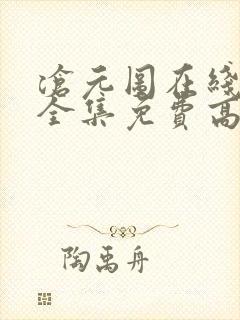 滄元圖在綫
全集免費高
陶禹舟